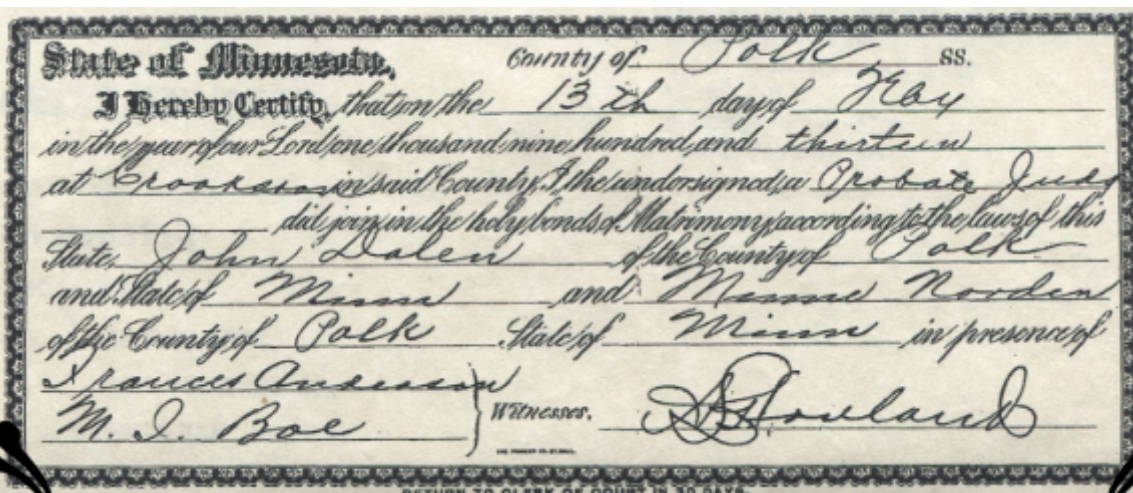 State of Minnesota, County of Polk SS.
I Hereby Certify, that on the 13th day of Feby
in the year of our Lord one thousand nine hundred and thirteen
at Crookston in said County, I, the undersigned, a Probate Judg
did join in the holy bonds of Matrimony according to the laws of this
State, John Dalen of the County of Polk
and State of Minn and Minnie Norden
of the County of Polk State of Minn in presence of
Frances Anderson
M. I. Boe Witnesses.
RETURN TO CLERK OF COURT IN 30 DAYS.